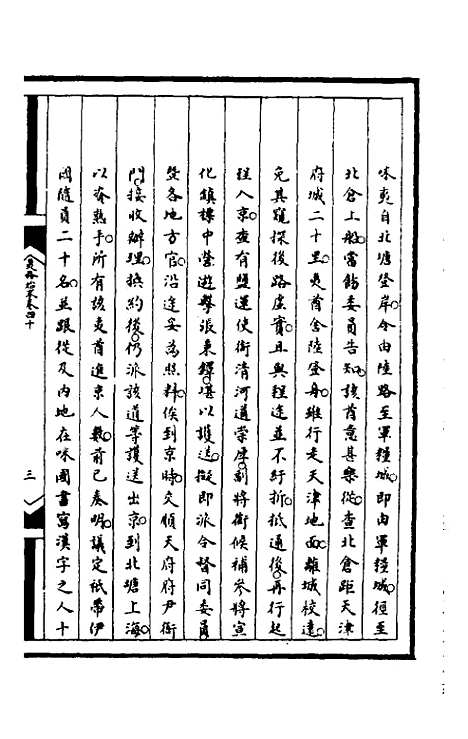 咪夷自北塘登岸令由陸路至軍糧城即由軍糧城徑至
北倉上船當飭委員告知該酋意甚樂從查北倉距天津
府城二十里夷酋舍陸登舟雖行走天津地面離城校遠
免其窺探後路虛實且與程途並不紆折抵通後再行起
程入京查有鹽運使銜清河道崇厚副將銜候補參將宣
化鎮標中營遊擊張秉鐸堪以護送擬即派令督同委員
暨各地方官沿途妥為照料俟到京時交順天府府尹衙
門接收辦理換約後仍派該道等護送出京到北塘上海
以資熟手所有該夷酋進京人數前已奏明議定祇帶伊
國隨員二十名並跟從及內地在咪國書寫漢字之人十
三